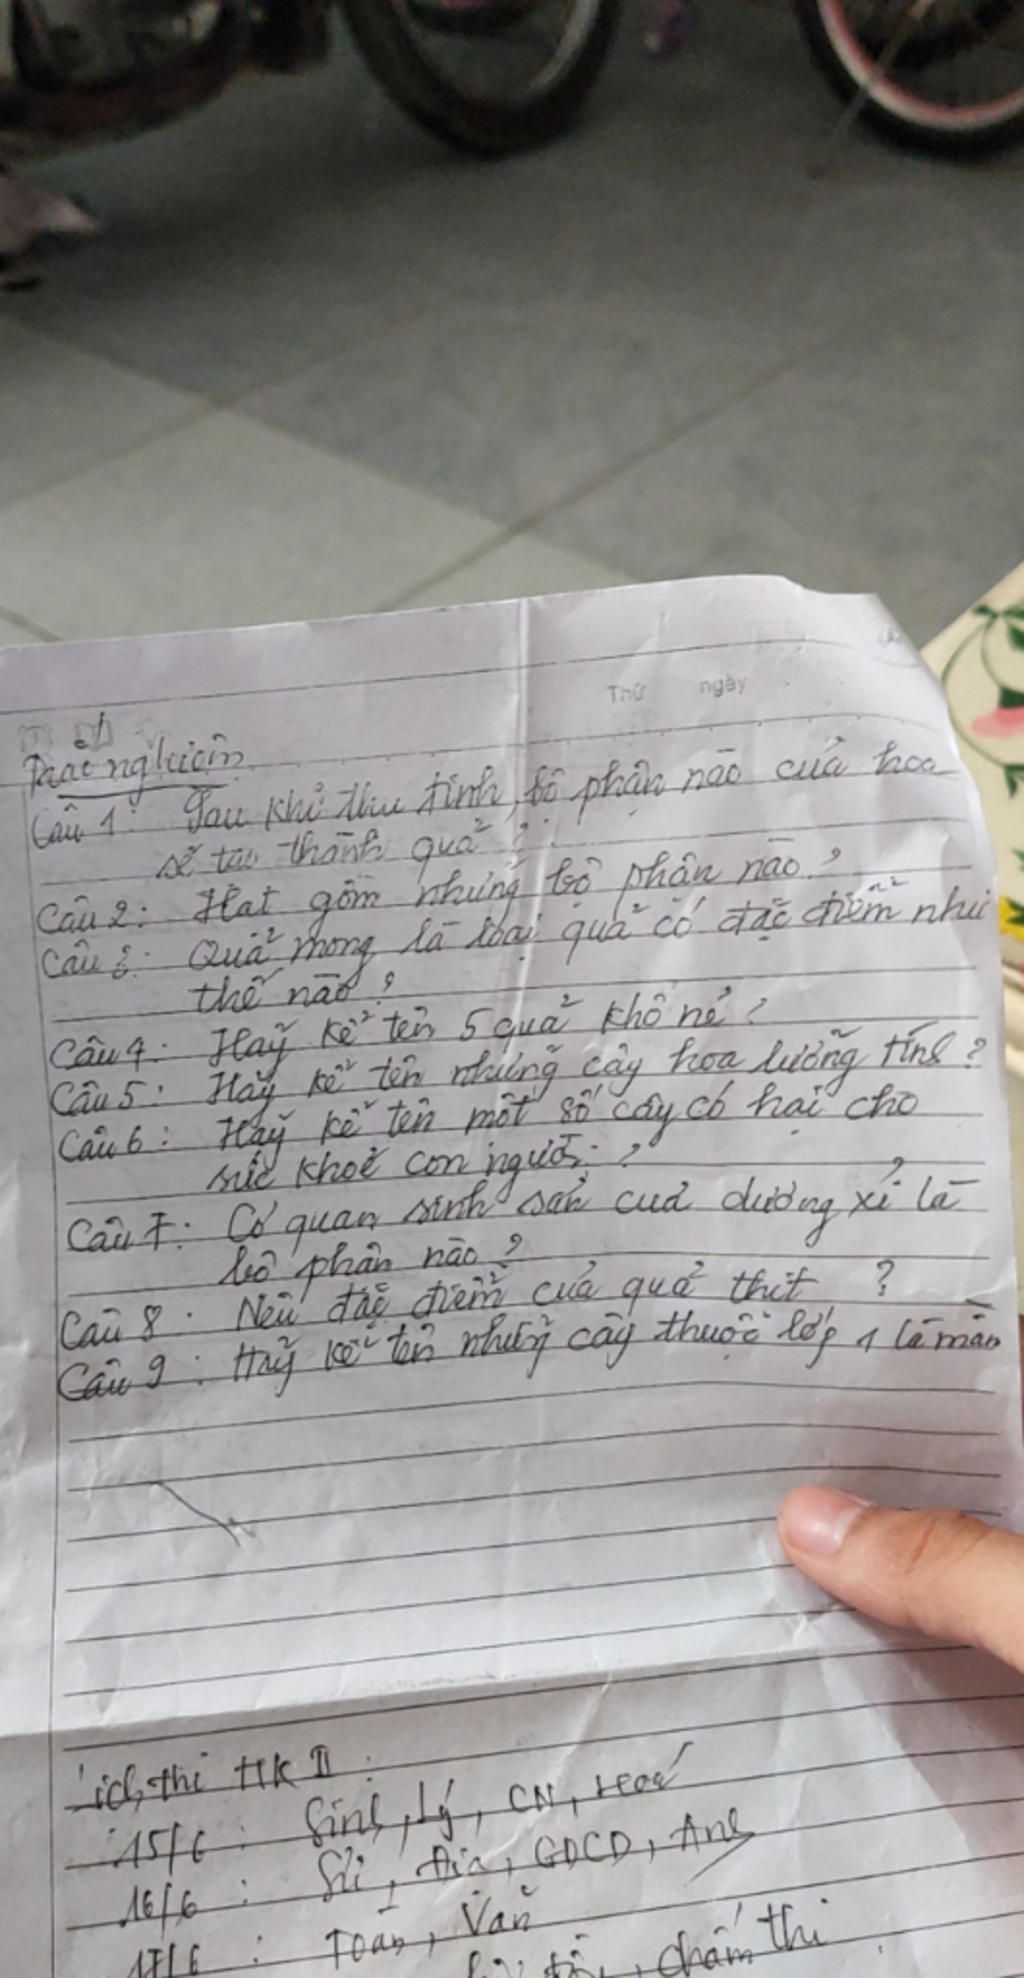 Thứ ngày
Trắc nghiệm
Câu 1: Sau khi thu tinh, bộ phận nào của hoa
sẽ tạo thành quả?
Câu 2: Hạt gồm những bộ phận nào?
Câu 3: Quả mọng là loại quả có đặc điểm như
thế nào?
Câu 4: Hãy kể tên 5 quả khô nẻ?
Câu 5: Hãy kể tên những cây hoa lưỡng tính?
Câu 6: Hãy kể tên một số cây có hại cho
sức khoẻ con người?
Câu 7: Cơ quan sinh sản của dương xỉ là
bộ phận nào?
Câu 8: Nêu đặc điểm của quả thịt?
Câu 9: Hãy kể tên những cây thuộc lớp 1 lá mầm
Lịch thi HK II:
15/6: Sinh, Lý, CN, Hoá
16/6: Sử, Địa, GDCD, Anh
17/6: Toán, Văn
chấm thi